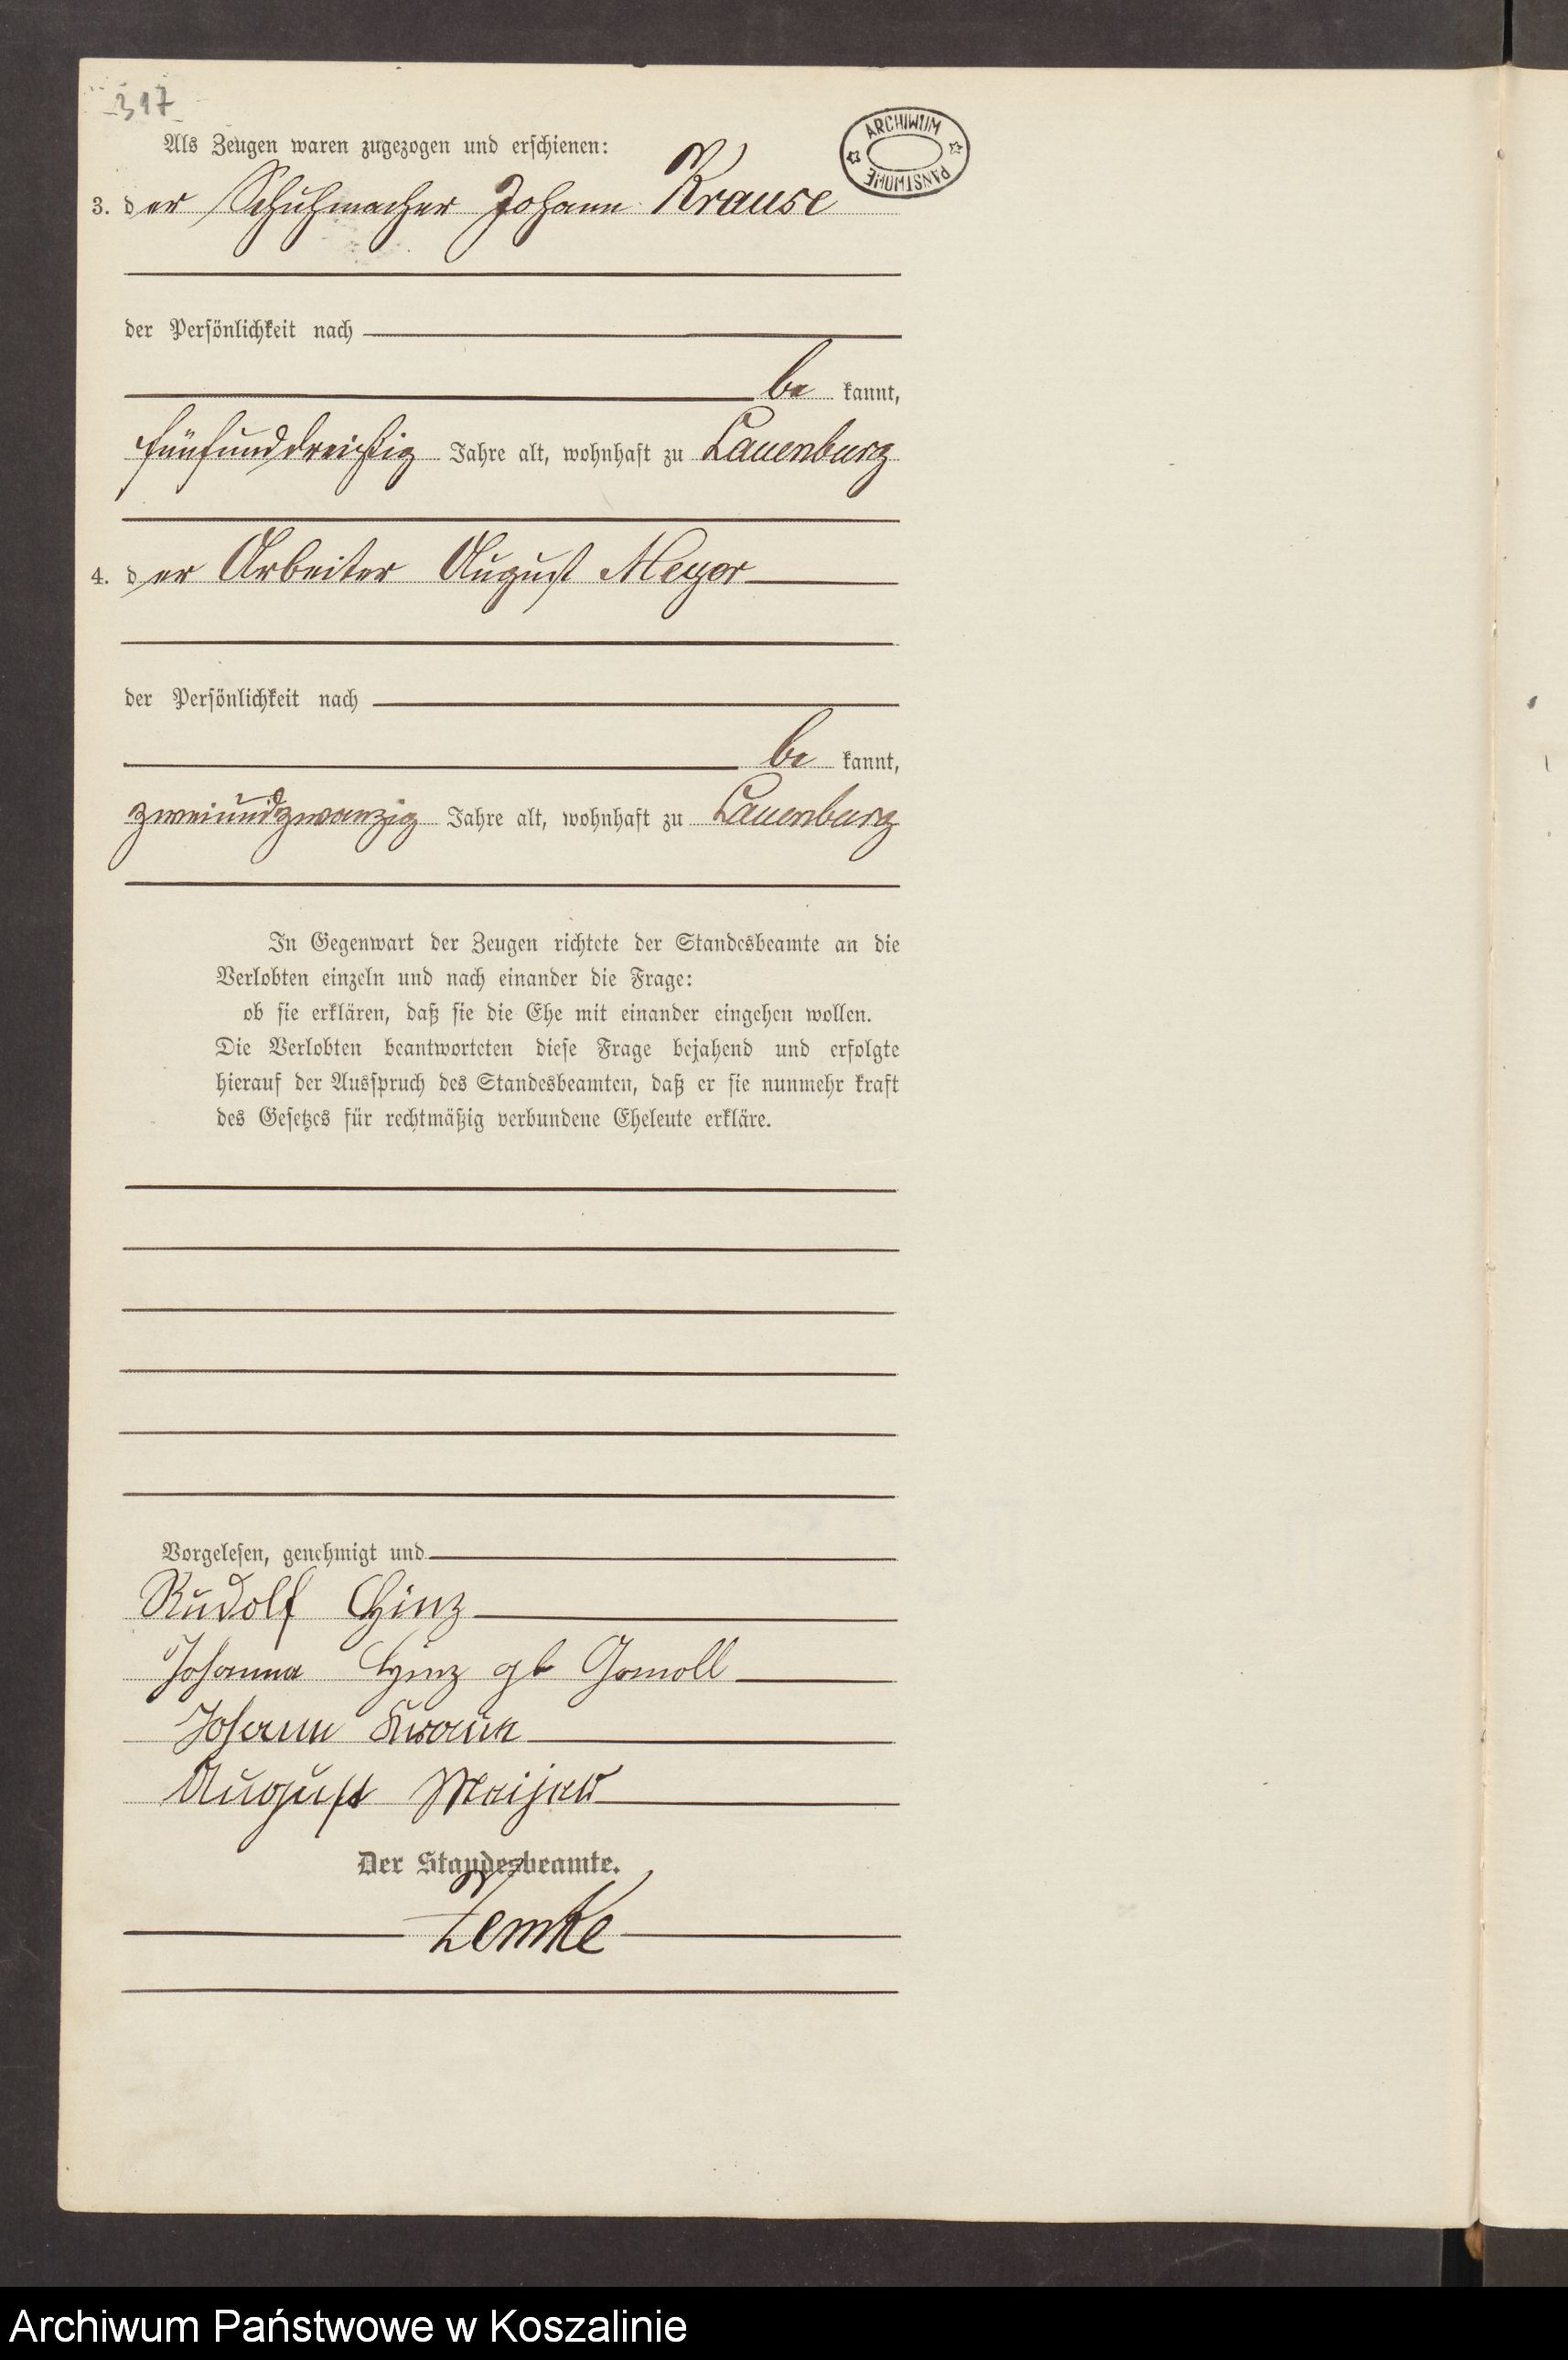 317
ARCHIWUM PAŃSTWOWE
Als Zeugen waren zugezogen und erschienen:
3. der Schuhmacher Johann Krause
der Persönlichkeit nach
be kannt,
fünfunddreißig Jahre alt, wohnhaft zu Lauenburg
4. der Arbeiter August Meyer
der Persönlichkeit nach
be kannt,
zweiundzwanzig Jahre alt, wohnhaft zu Lauenburg
In Gegenwart der Zeugen richtete der Standesbeamte an die
Verlobten einzeln und nach einander die Frage:
ob sie erklären, daß sie die Ehe mit einander eingehen wollen.
Die Verlobten beantworteten diese Frage bejahend und erfolgte
hierauf der Ausspruch des Standesbeamten, daß er sie nunmehr kraft
des Gesetzes für rechtmäßig verbundene Eheleute erkläre.
Vorgelesen, genehmigt und
Rudolf Hinz
Johanna Hinz gb Gomoll
Johann Krause
August Meijer
Der Standesbeamte.
Zemke
Archiwum Państwowe w Koszalinie